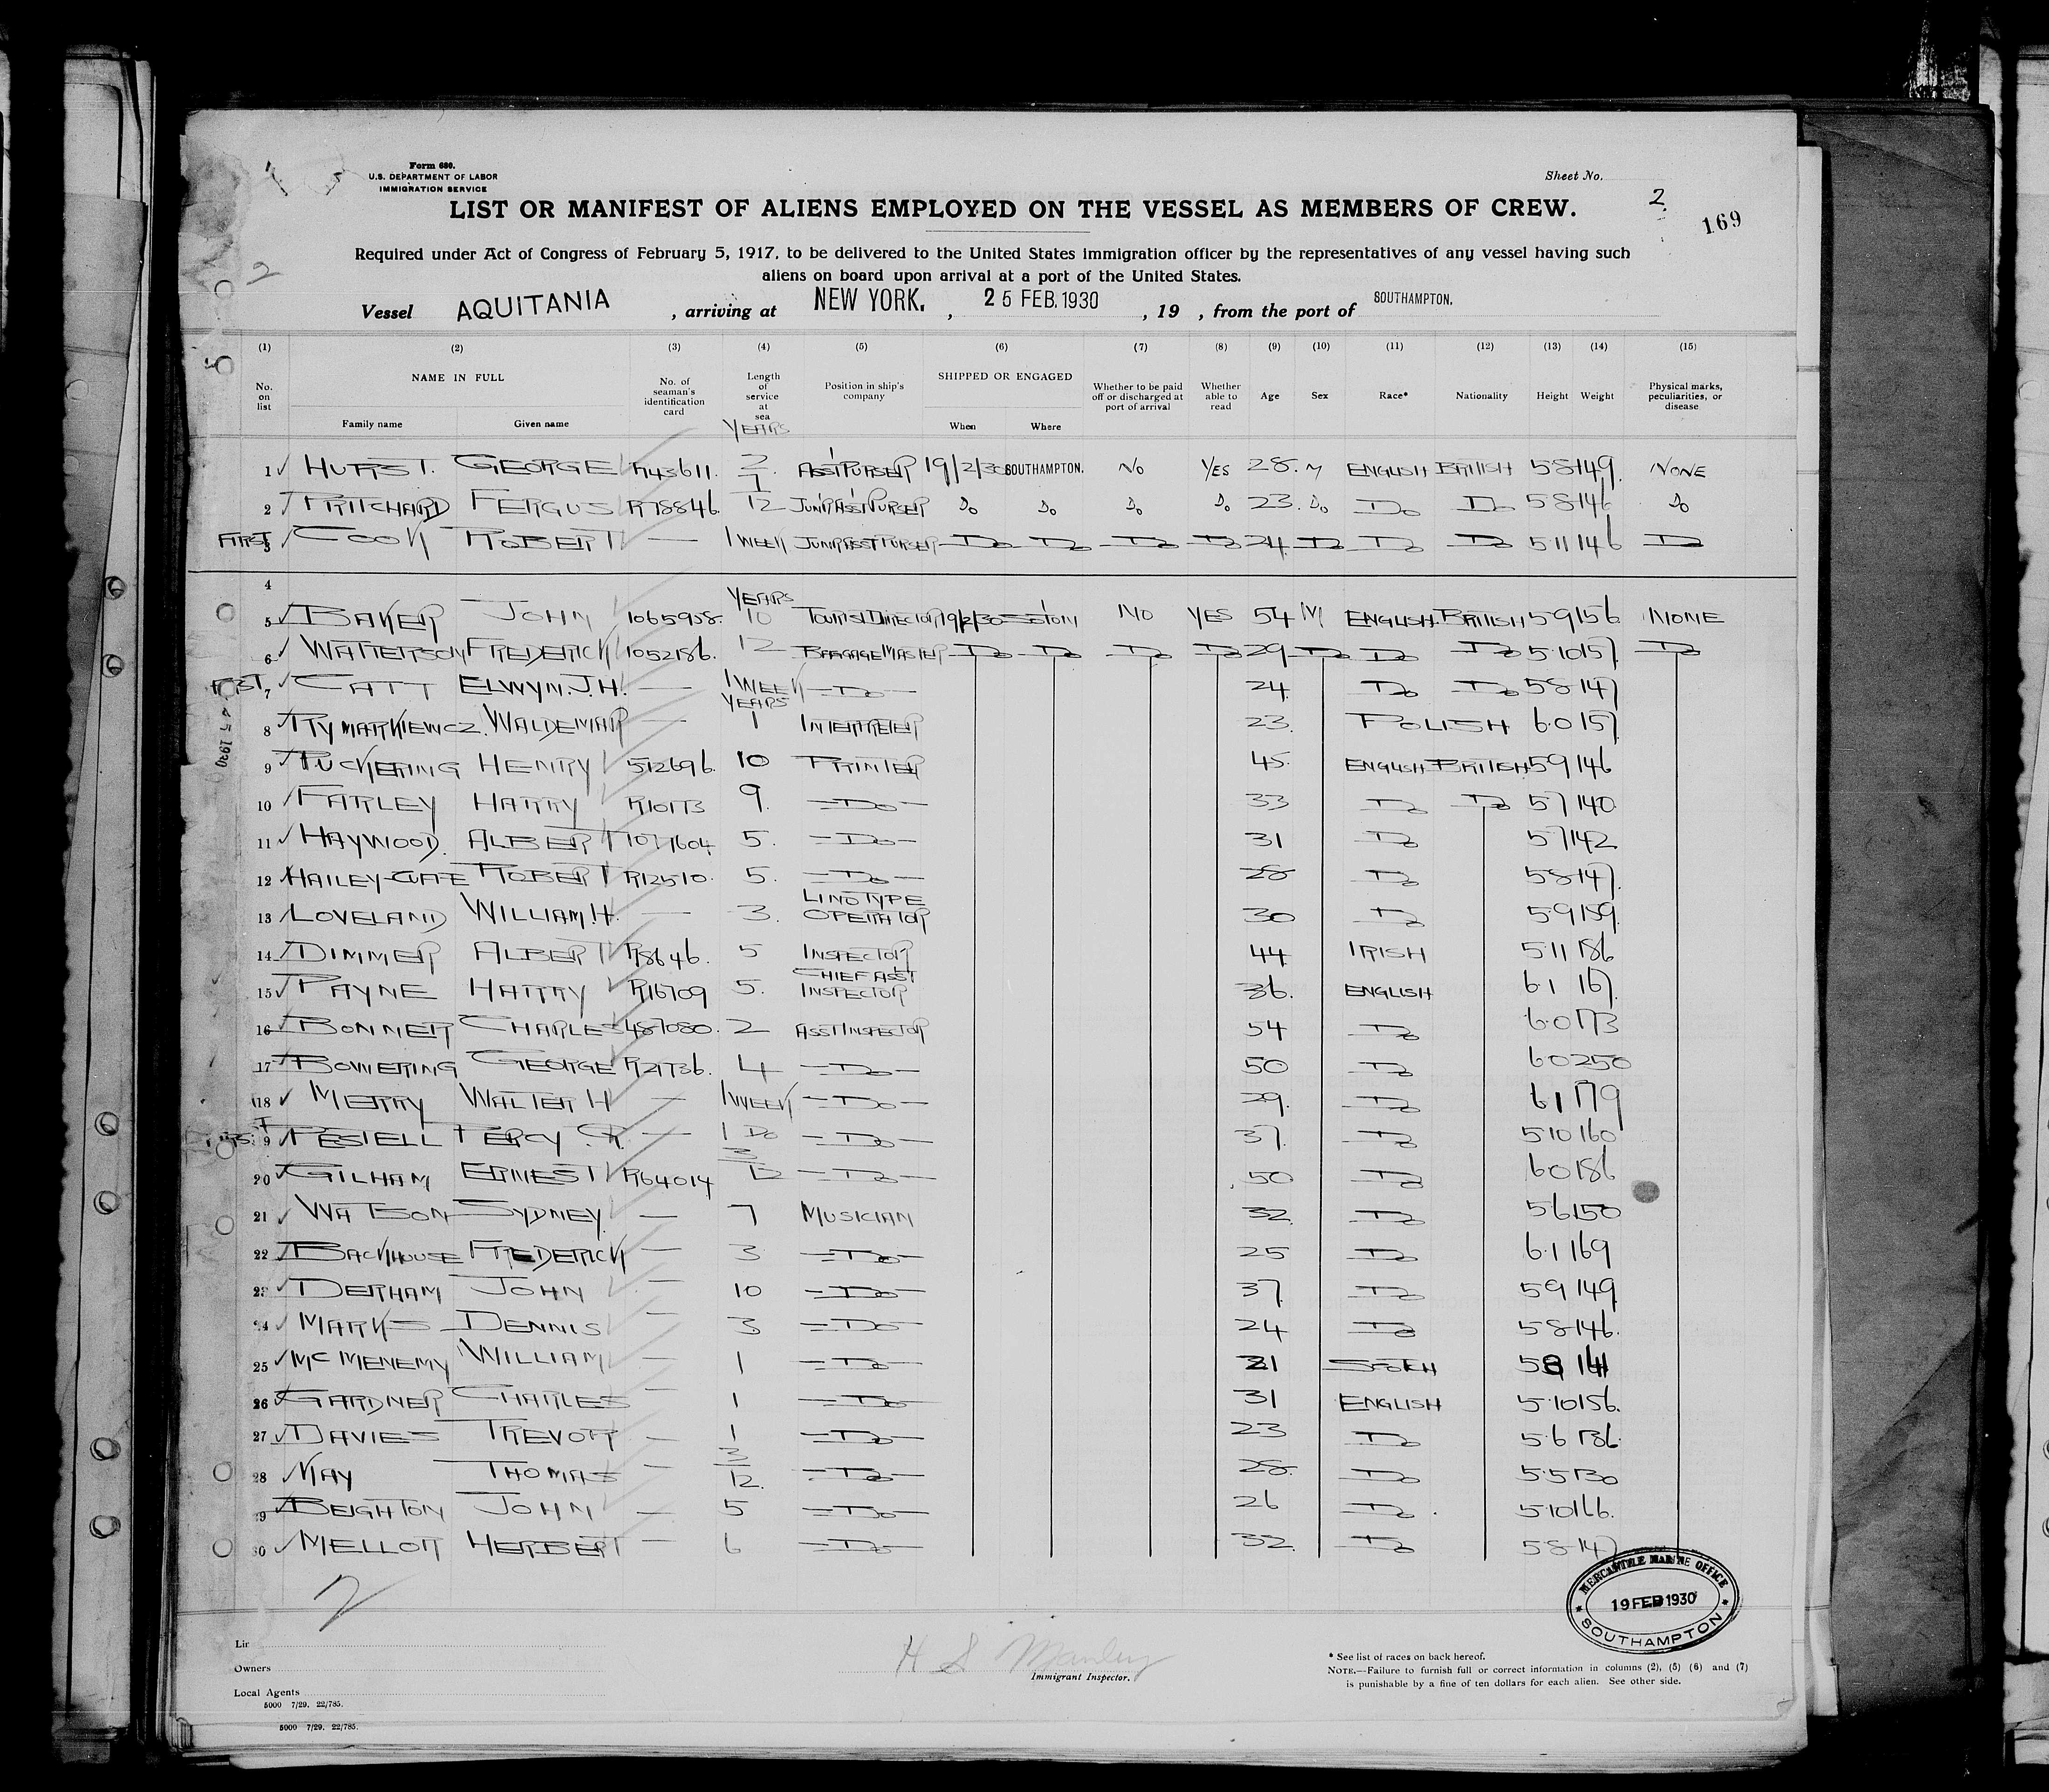 Form 680.
U.S. DEPARTMENT OF LABOR
IMMIGRATION SERVICE
Sheet No. 2
169
LIST OR MANIFEST OF ALIENS EMPLOYED ON THE VESSEL AS MEMBERS OF CREW.
Required under Act of Congress of February 5, 1917, to be delivered to the United States immigration officer by the representatives of any vessel having such
aliens on board upon arrival at a port of the United States.
2
Vessel AQUITANIA, arriving at NEW YORK., 25 FEB. 1930, 19 , from the port of SOUTHAMPTON.
(1) (2) (3) (4) (5) (6) (7) (8) (9) (10) (11) (12) (13) (14) (15)
No. on list NAME IN FULL Family name Given name No. of seaman's identification card Length of service at sea Position in ship's company SHIPPED OR ENGAGED When Where Whether to be paid off or discharged at port of arrival Whether able to read Age Sex Race* Nationality Height Weight Physical marks, peculiarities, or disease
YEARS
1 HURST. GEORGE R43611. ASST PURSER 19/2/30 SOUTHAMPTON. NO YES 28. M ENGLISH BRITISH 5 8 149. NONE
2 PRITCHARD FERGUS R78846. 12 JUNR ASST PURSER Do Do Do Do 23. Do Do Do 5 8 146 Do
FIRST 3 COOK ROBERT — 1 WEEK JUNR ASST PURSER Do Do Do Do 24 Do Do Do 5 11 146 Do
4
YEARS
5 BAKER JOHN 1065958. 10 TOURIST DIRECTOR 19/2/30 S'TON NO YES 54 M ENGLISH BRITISH 5 9 156 NONE
6 WATTERSON FREDERICK 1052186. 12 BAGGAGE MASTER Do Do Do Do 29 Do Do Do 5.10 157 Do
FIRST 7 CATT ELWYN. J. H. — 1 WEEK — Do — 24 Do Do 5 8 147
YEARS
8 RYMARKIEWCZ. WALDEMAR — 1 INTERPRETER 23. POLISH 6.0 157
9 PUCKERING HENRY 512696. 10 PRINTER 45. ENGLISH BRITISH 5 9 146
10 FARLEY HARRY R10173 9. — Do — 33 Do Do 5 7 140
11 HAYWOOD. ALBERT 1071604 5. — Do — 31 Do 5 7 142
12 HAILEY-CUFFE ROBERT R12510. 5. — Do — 28 Do 5 8 147.
13 LOVELAND WILLIAM H. — 3. LINOTYPE OPERATOR 30 Do 5 9 159.
14 DIMMER ALBERT R8646. 5 INSPECTOR 44 IRISH 5 11 186
15 PAYNE HARRY R16709 5. CHIEF ASST INSPECTOR 36. ENGLISH 6.1 167.
16 BONNER CHARLES 487080. 2 ASST INSPECTOR 54 Do 6.0 173
17 BOWERING GEORGE R21736. 4 — Do — 50 Do 6 0 250
18 MERRY WALTER H — 1 WEEK — Do — 29. Do 6 1 179
19 PESTELL PERCY — 1 Do — Do — 37. Do 5 10 160
20 GILHAM ERNEST R64014 3/12 — Do — 50 Do 6 0 186
21 WATSON SYDNEY. — 7 MUSICIAN 32 Do 5 6 150
22 BACKHOUSE FREDERICK — 3 — Do — 25 Do 6.1 169
23 DERHAM JOHN — 10 — Do — 37 Do 5 9 149
24 MARKS DENNIS — 3 — Do — 24 Do 5 8 146.
25 MCMENEMY WILLIAM — 1 — Do — 21 SCOTCH 5 8 141
26 GARDNER CHARLES — 1 — Do — 31 ENGLISH 5.10 156.
27 DAVIES TREVOR — 1 — Do — 23 Do 5.6 136.
28 MAY THOMAS — 3/12. — Do — 28. Do 5.5 130
29 BEIGHTON JOHN — 5 — Do — 26 Do 5.10 166.
30 MELLOR HERBERT — 6 — Do — 32. Do 5 8 147
2
MERCANTILE MARINE OFFICE
19 FEB 1930
SOUTHAMPTON
Lin
Owners
Local Agents
5000 7/29. 22/785.
5000 7/29. 22/785.
H S Manley
Immigrant Inspector.
* See list of races on back hereof.
NOTE.—Failure to furnish full or correct information in columns (2), (5) (6) and (7)
is punishable by a fine of ten dollars for each alien. See other side.